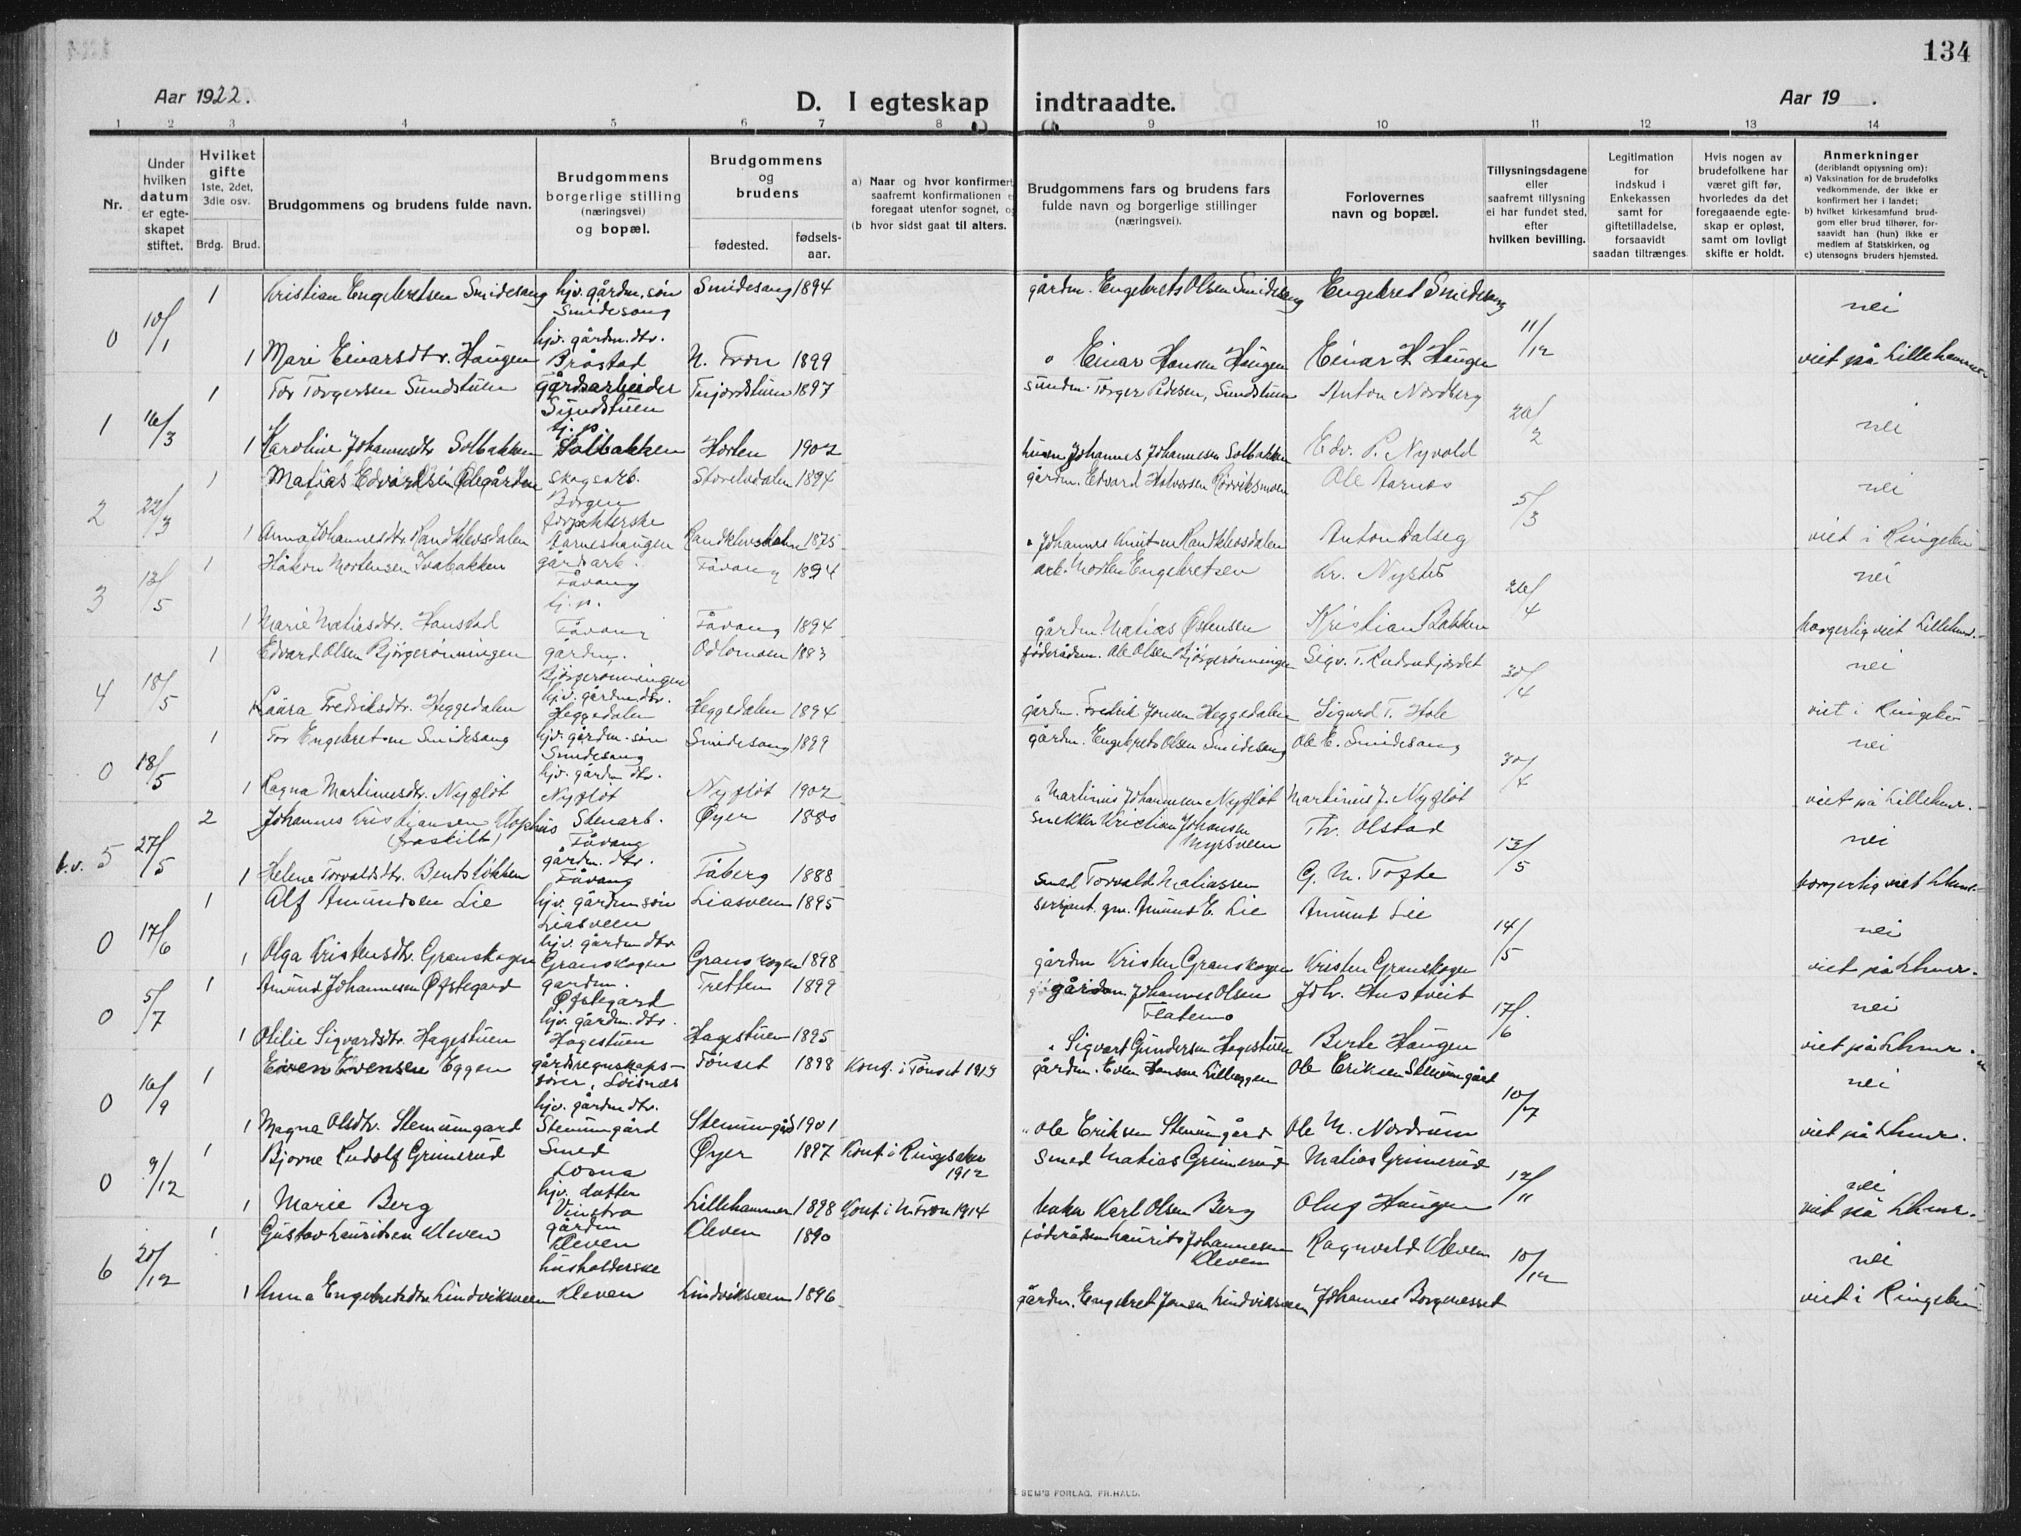 134
Aar 1922.
D. I egteskap indtraadte.
Aar 19 .
1 2 3 4 5 6 7 8 9 10 11 12 13 14
Nr.
Under hvilken datum er egteskapet stiftet.
Hvilket gifte 1ste, 2det, 3die osv.
Brdg. Brud.
Brudgommens og brudens fulde navn.
Brudgommens borgerlige stilling (næringsvei) og bopæl.
Brudgommens og brudens
fødested.
fødselsaar.
a) Naar og hvor konfirmert, saafremt konfirmationen foregaat utenfor sognet,
(b hvor sidst gaat til alters.
Brudgommens fars og brudens fars fulde navn og borgerlige stillinger (næringsvei).
Forlovernes navn og bopæl.
Tillysningsdagene eller saafremt tillysning ei har fundet sted, efter hvilken bevilling.
Legitimation for indskud i Enkekassen samt for giftetilladelse, forsaavidt saadan tiltrænges
Hvis nogen av brudefolkene har været gift før, hvorledes da det foregaaende egteskap er opløst, samt om lovligt skifte er holdt.
Anmerkninger (deriblandt opjysning om):
a) Vaksination for de brudefolks vedkommende, der ikke er konfirmert her i landet;
b) hvilket kirkesamfund brudgom eller brud tilhører, forsaavidt han (hun) ikke er medlem af Statskirken, og
c) utensogns bruders hjemsted.
0 10/1 1 Kristian Engebretsen Smidesang hjv. gårdm. søn Smidesang Smidesang 1894 gårdm. Engebret Olsen Smidesang Engebret Smidesang 11/12 nei
1 Mari Einarsdtr. Haugen hjv. gårdm. dtr. Bråstad N. Fron 1899 " Einar Hansen Haugen Einar H. Haugen viet på Lillehammer
1 16/3 1 Tor Torgersen Sundstuen gårdsarbeider Sundstuen 1897 Torger Pedersen, Sundstuen Anton Nordberg 26/2 nei
1 Karoline Johannesdtr Solbakken tj. p. Solbakken Horten 1902 Johannes Johannesen Solbakken Edv. P. Nyvold
2 22/3 1 Matias Edvardsen Ødegården skogsarb. Borgen 1894 gårdm. Edvard Halvorsen Ole Aarnes 5/3 nei
1 Anna Johannesdtr Randklevsdalen Aarneshaugen Randklevsdalen 1875 " Johannes Knutsen Randklevsdalen Anton Dalseg viet i Ringebu
3 13/5 1 Håkon Mortensen gårdsarb. Fåvang Fåvang 1894 arb. Morten Engebretsen Kr. Nystu 26/4 nei
1 Marie Matiasdtr. Hanstad tj. p. Fåvang Fåvang 1894 gårdm. Matias Østensen Kristian Bakken borgerlig viet Lillehmr.
4 18/5 1 Edvard Olsen Bjørgerønningen gårdm. Bjørgerønningen Odlomoen 1883 føderådsm. Ole Olsen Bjørgerønningen Sigv. T. 30/4 nei
1 Laura Fredriksdtr. Heggedalen hjv. gårdm. dtr. Heggedalen Heggedalen 1894 gårdm. Fredrik Jonsen Heggedalen Sigurd T. Hole viet i Ringebu
0 18/5 1 Tor Engebretsen Smidesang hjv. gårdm. søn Smidesang Smidesang 1899 gårdm. Engebret Olsen Smidesang Ole E. Smidesang 30/4 nei
1 Ragna Martinusdtr. Nyfløt hjv. gårdm. dtr. Nyfløt Nyfløt 1902 " Martinus Johannesen Nyfløt Martinus J. Nyfløt viet på Lillehmr.
b.v. 5 27/5 2 Johannes Kristiansen Klophus (fraskilt) Stenarb. Fåvang Øyer 1880 snekker Kristian Johansen Myrsveen Th. Olstad 13/5 nei
1 Helene Torvaldsdtr. Bentsløkken gårdm. dtr. Fåvang Fåberg 1888 smed Torvald Matiassen G. M. Tofte borgerlig viet Lhmr.
0 17/6 1 Alf Amundsen Lie hjv. gårdm søn Liasveen Liasveen 1895 sersjant. gm. Amund E. Lie Amund Lie 14/5 nei
1 Olga Kristensdtr. Granskogen hjv. gårdm dtr Granskogen Granskogen 1898 gårdm Kristen Granskogen Kristen Granskogen viet på Lhmr.
0 5/7 1 Amund Johannesen Øfstegard gårdm. Øfstegard Tretten 1899 gårdm Johannes Olsen Flatemo Joh. Hustveit 17/6 nei
1 Otilie Sigvardsdtr. Hagestuen hjv. gårdm. dtr. Hagestuen Hagestuen 1895 " Sigvart Gundersen Hagestuen Berte Haugen viet på Lhmr.
0 16/9 1 Even Evensen Eggen gårdsregnskapsfører, Losnæs Tönset 1898 Konf. i Tønset 1913 gårdm. Even Hansen Lilleeggen Ole Eriksen Stenumgård 10/7 nei
1 Magna Olsdtr. Stenumgard hjv. gårdm dtr. Stenumgård Stenumgård 1901 " Ole Eriksen Stenumgård Ole M. Nordrum viet på Lhmr.
0 9/12 1 Bjarne Rudolf Grimerud Smed Losna Øyer 1897 Konf i Ringsaker 1912 Smed Matias Grimerud Matias Grimerud 12/11 nei
1 Marie Berg hjv. datter Vinstra Lillehammer 1898 Konf i N. Fron 1914 Karl Olsen Berg Oluf Haugen viet på Lhmr.
6 20/12 1 Gustav Lauritsen Kleven gårdm Kleven Kleven 1890 føderådsm Laurits Johannesen Kleven Ragnvald Kleven 10/12 nei
1 Anna Engebretsdtr Lindviksveen husholderske Kleven Lindviksveen 1896 gårdm. Engebret Jonsen Lindviksveen Johannes Borgenesset viet i Ringebu
SEM'S FORLAG, FR. HALD.